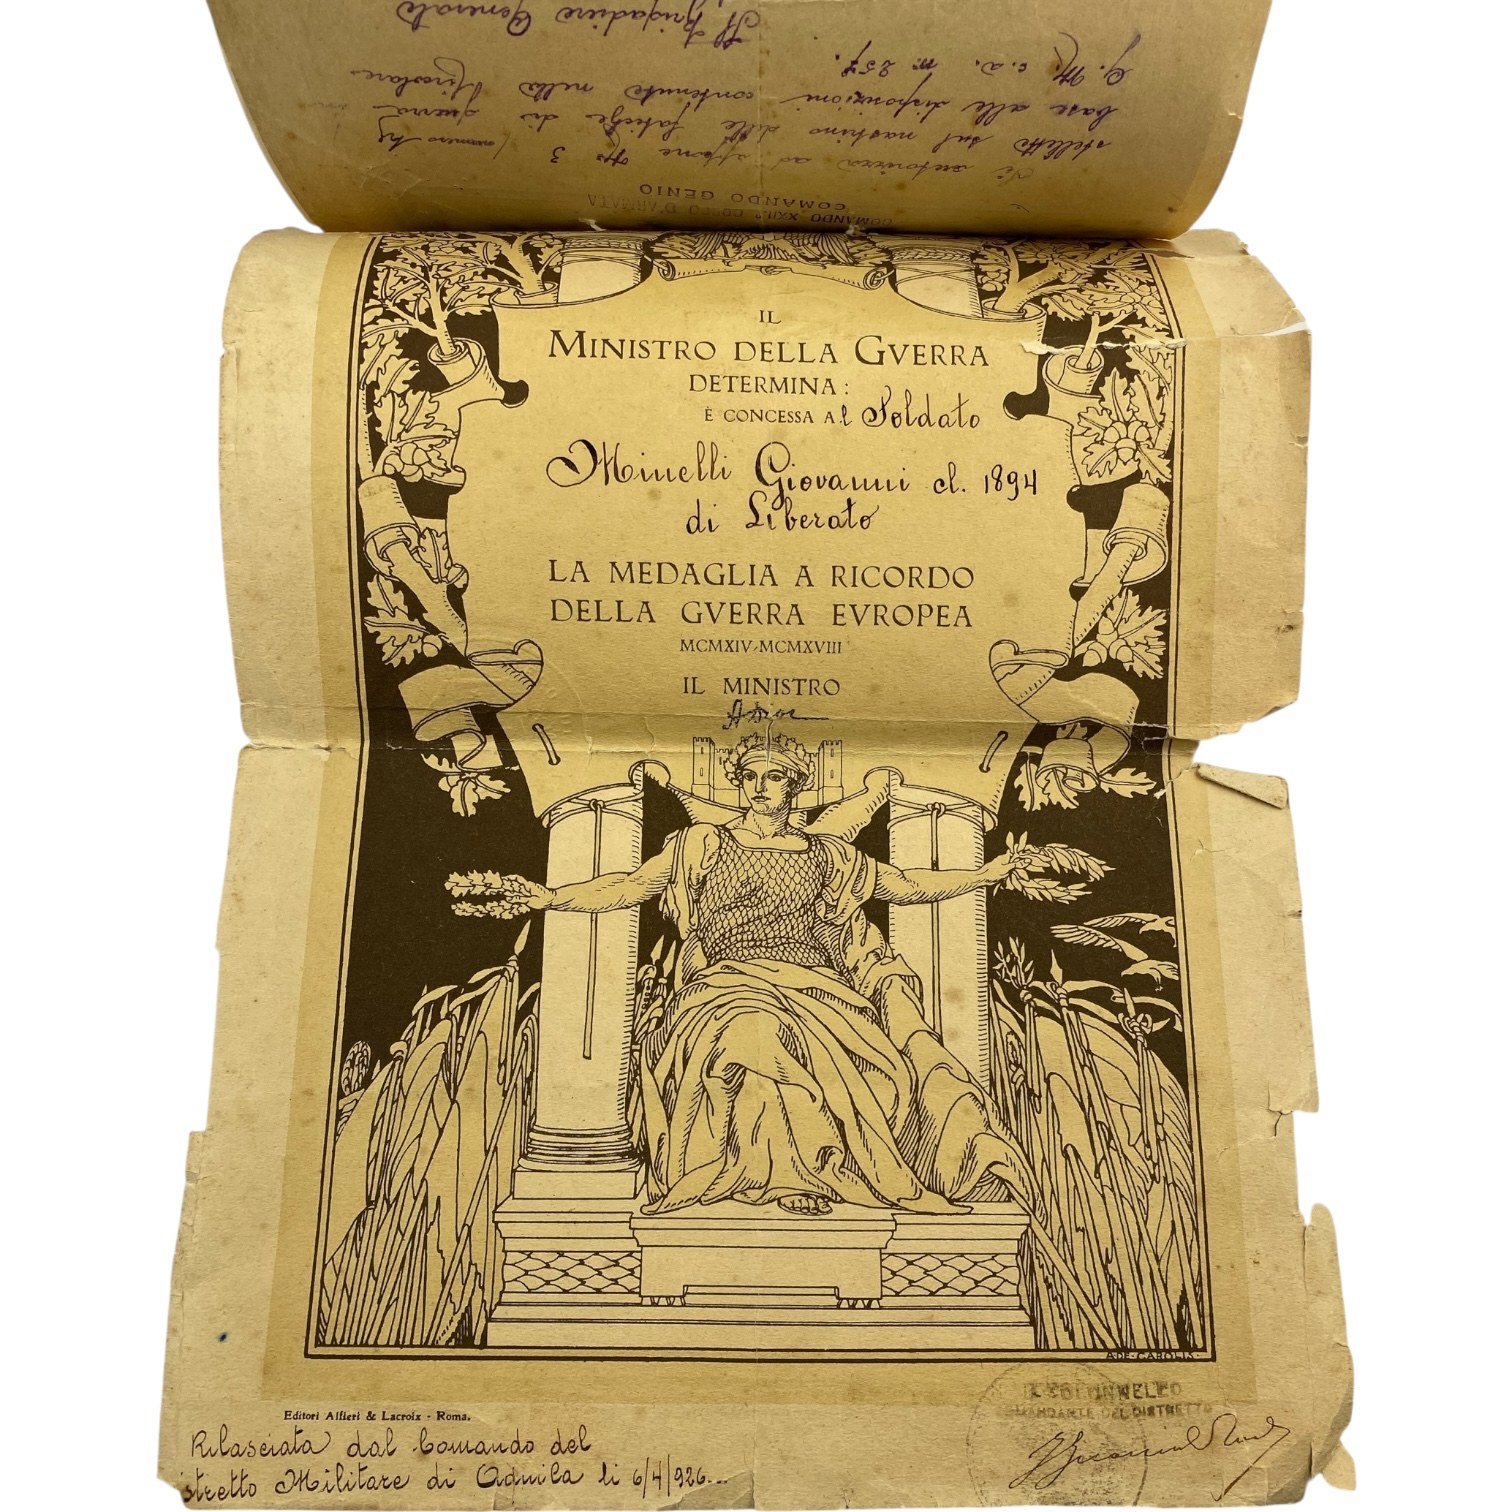 COMANDO XXII° CORPO D'ARMATA
COMANDO GENIO
Si autorizza ad apporre N° 3 (numero tre
stellette sul nastrino delle fatiche di guerra in
base alle disposizioni contenute nella Circolare
G. M. c.a. N° 257.
Il Brigadiere Generale
IL
MINISTRO DELLA GVERRA
DETERMINA:
È CONCESSA Al Soldato
Minelli Giovanni cl. 1894
di Liberato
LA MEDAGLIA A RICORDO
DELLA GVERRA EVROPEA
MCMXIV-MCMXVIII
IL MINISTRO
A·DE·CAROLIS·
Editori Alfieri & Lacroix - Roma.
IL COLONNELLO
COMANDANTE DEL DISTRETTO
Rilasciata dal Comando del
istretto Militare di Aquila li 6/4/926